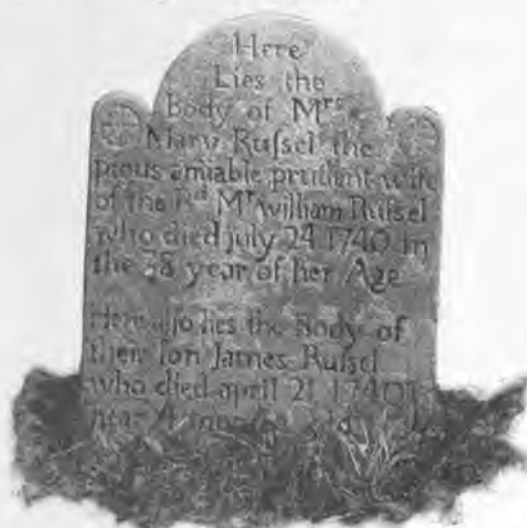 Here
Lies the
Body of Mrs
Mary Ruſsel the
pious amiable prudent wife
of the Rd Mr William Ruſsel
who died july 24 1740 in
the 38 year of her Age
Here also lies the Body of
their ſon James Ruſsel
who died april 21 1740
near 4 months old